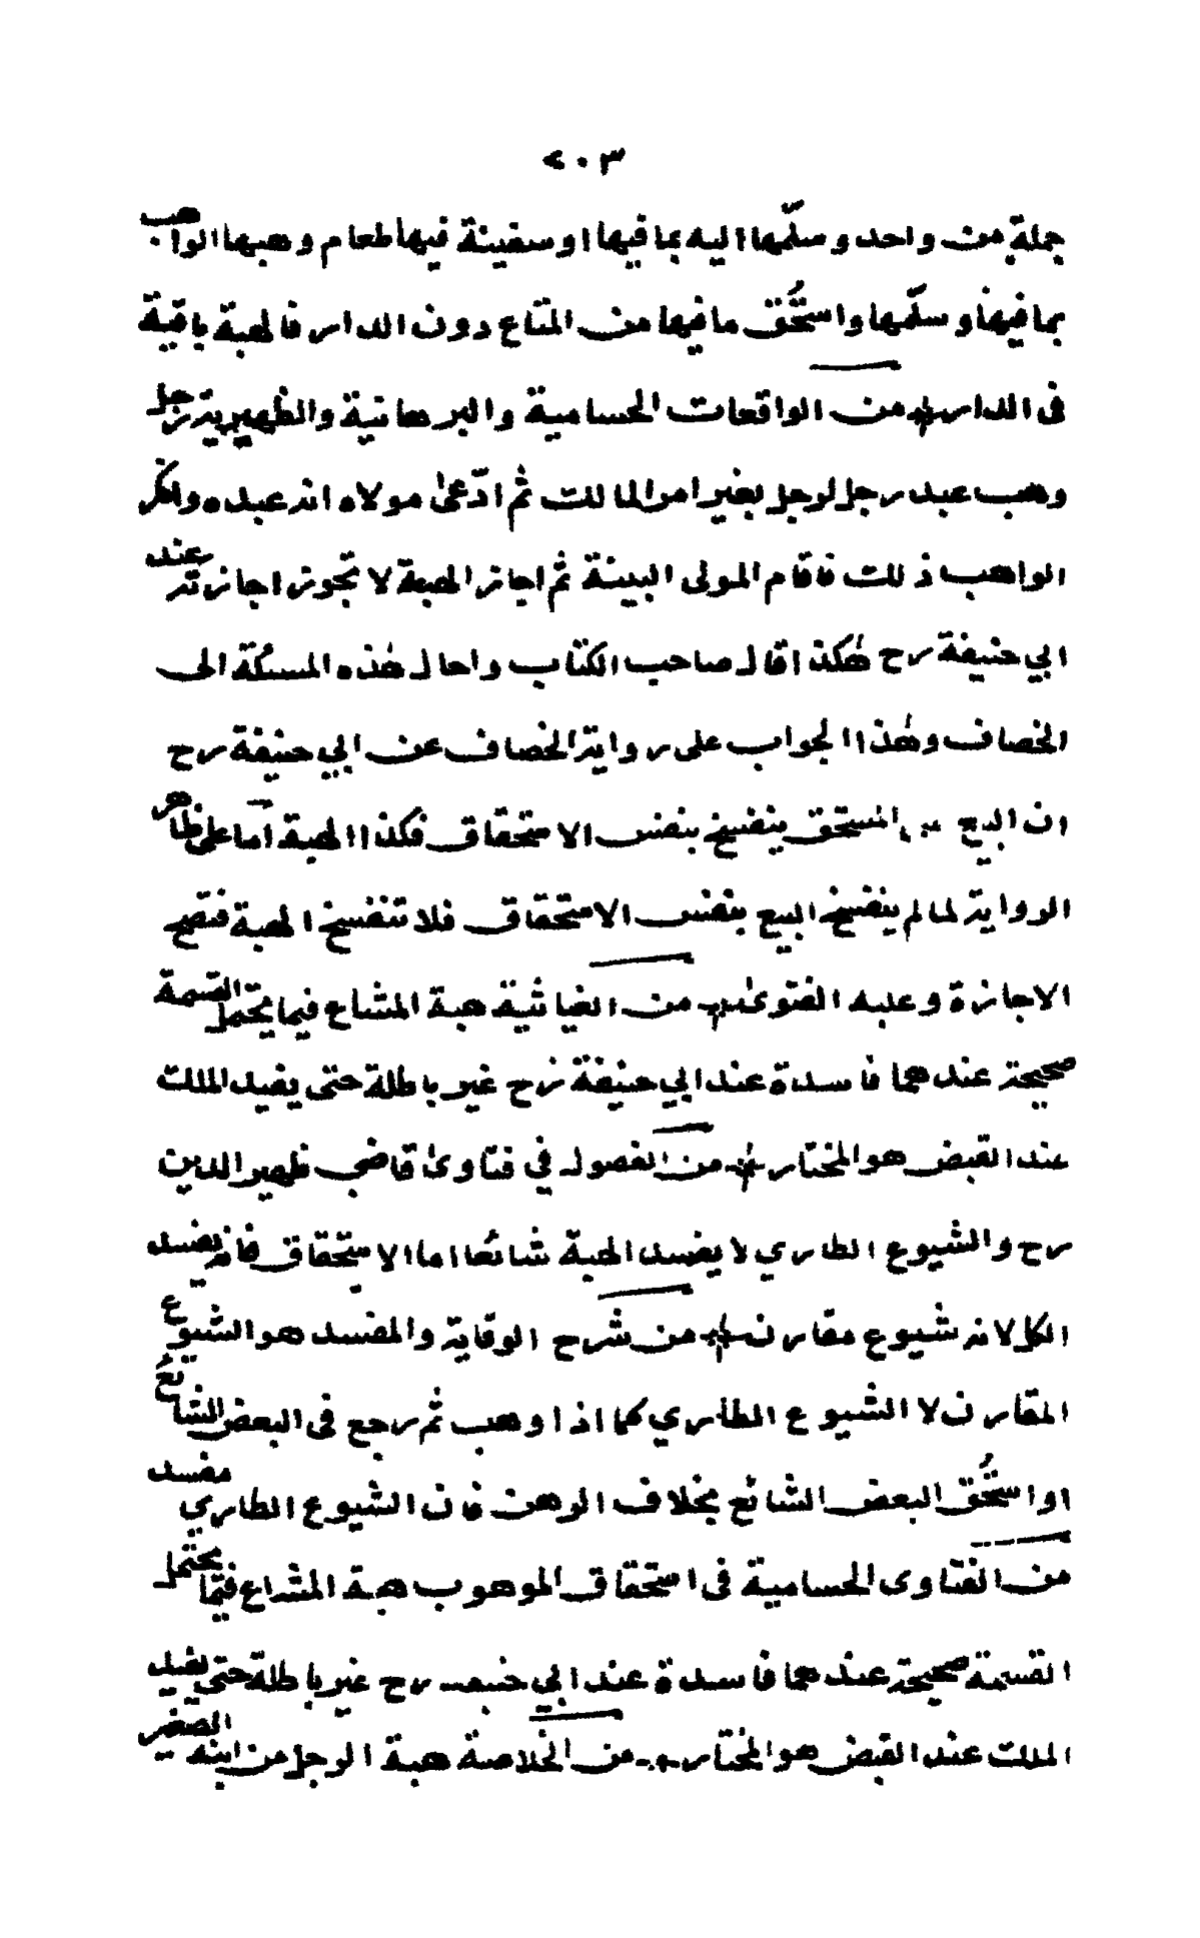 ٢٠٣
جملة من واحد وسلّمها اليه بما فيها او سفينة فيها طعام وهبها الواهب
بما فيها وسلّمها واستُحق ما فيها من المتاع دون الدار فالهبة باقية
فى الدار من الواقعات الحسامية والبرهانية والظهيرية رجل
وهب عبد رجل لرجل بغير امر المالك ثم ادّعى مولاه انه عبده وانكر
الواهب ذلك فاقام المولى البينة ثم اجاز الهبة لا تجوز اجازته عند
ابي حنيفة رح هكذا قال صاحب الكتاب واحال هذه المسئلة الى
الخصاف وهذا الجواب على رواية الخصاف عن ابي حنيفة رح
ان البيع المستحق ينفسخ بنفس الاستحقاق فكذا الهبة اما على ظاهر
الرواية لما لم ينفسخ البيع بنفس الاستحقاق فلا تنفسخ الهبة فتصح
الاجازة وعليه الفتوى من الغياثية هبة المشاع فيما يحتمل القسمة
صحيحة عندهما فاسدة عند ابي حنيفة رح غير باطلة حتى يفيد الملك
عند القبض هو المختار من الفصول في فتاوى قاضي ظهير الدين
رح والشيوع الطاري لا يفسد الهبة شائعا اما الاستحقاق فانه يفسد
الكل لانه شيوع مقارن من شرح الوقاية والمفسد هو الشيوع
المقارن لا الشيوع الطاري كما اذا وهب ثم رجع فى البعض الشائع
او استُحق البعض الشائع بخلاف الرهن فان الشيوع الطاري مفسد
من الفتاوى الحسامية فى استحقاق الموهوب هبة المشاع فيما يحتمل
القسمة صحيحة عندهما فاسدة عند ابي حنيفة رح غير باطلة حتى يفيد
الملك عند القبض هو المختار من الخلاصة هبة الرجل من ابنه الصغير